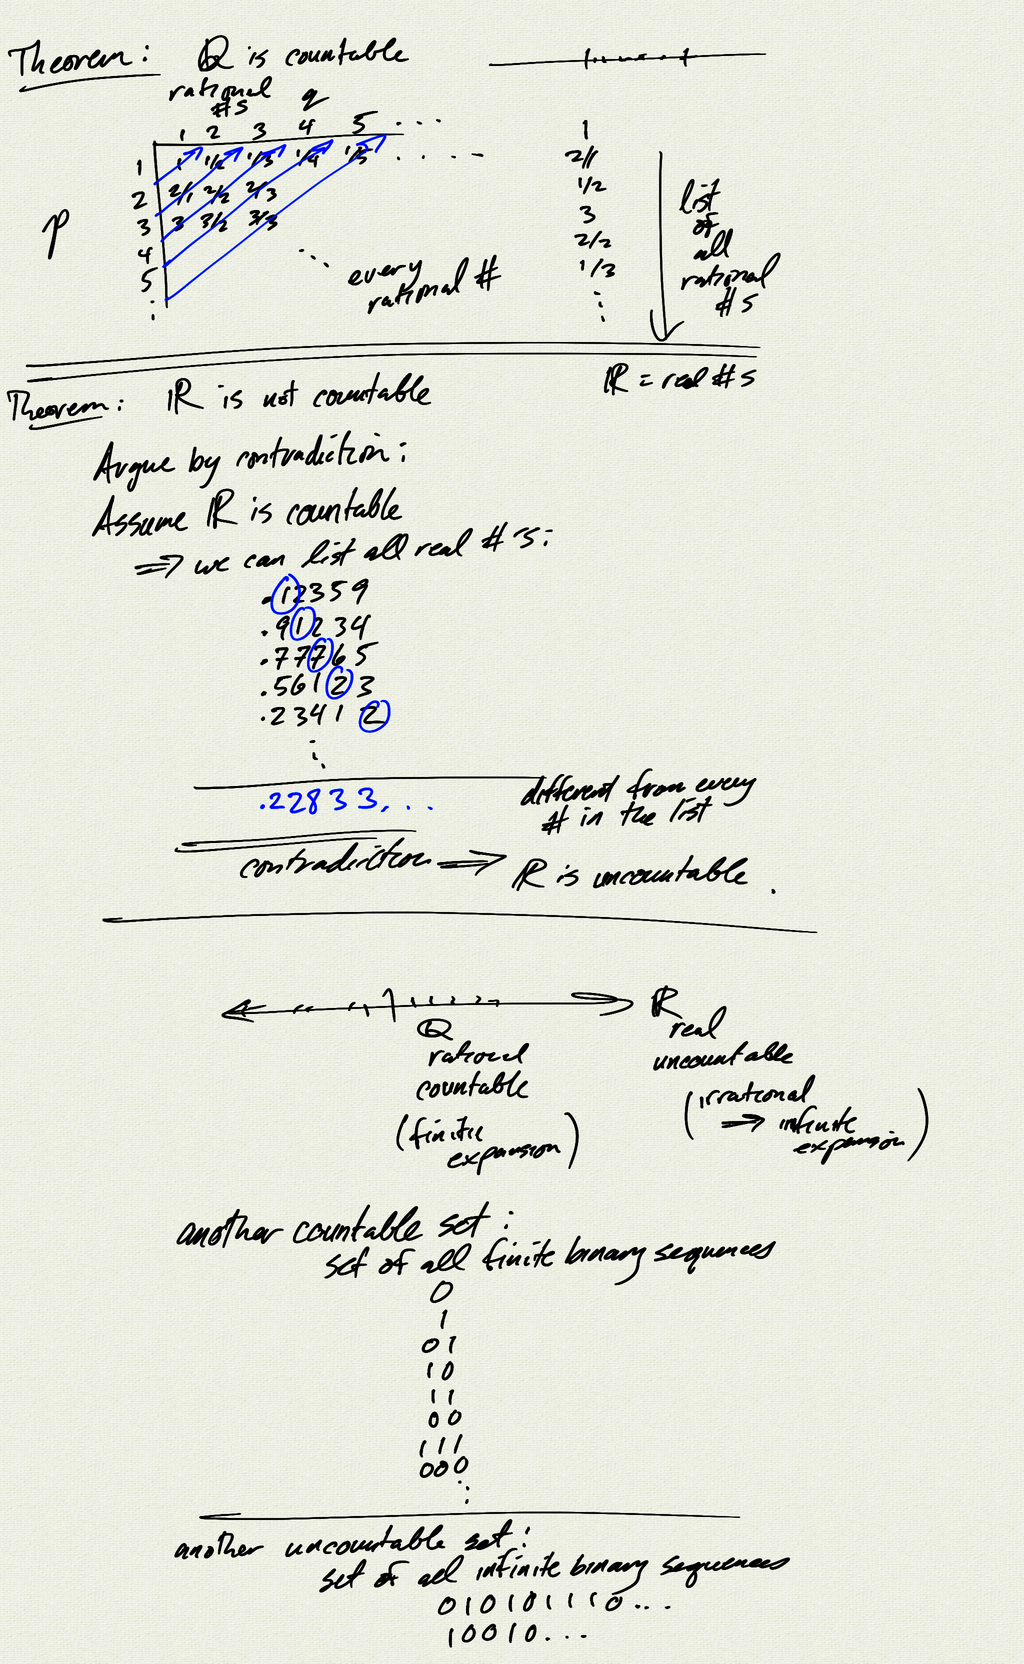 Theorem: ℚ is countable
rational
#s
q
1 2 3 4 5 ...
1 1 1/2 1/3 1/4 1/5 ....
2 2/1 2/2 2/3
3 3 3/2 3/3
p
4
5
⋮
every
rational #
1
2/1
1/2
3
2/2
1/3
⋮
list
of
all
rational
#s
Theorem: ℝ is not countable
ℝ = real #s
Argue by contradiction:
Assume ℝ is countable
⇒ we can list all real #'s:
.12359
.91234
.77765
.56123
.23412
⋮
.22833...
different from every
# in the list
contradiction ⇒ ℝ is uncountable.
ℚ
rational
countable
(finite
expansion)
ℝ
real
uncountable
(irrational
⇒ infinite
expansion)
another countable set:
set of all finite binary sequences
0
1
01
10
11
00
111
000
⋮
another uncountable set:
set of all infinite binary sequences
010101110...
10010...